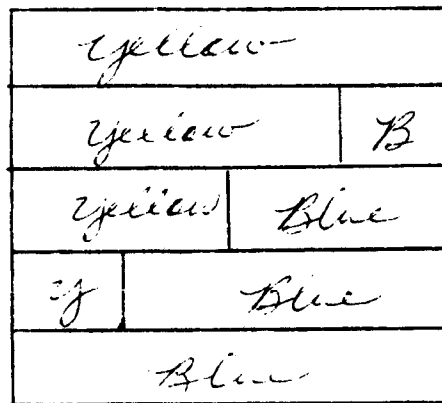 Yellow
Yellow B
Yellow Blue
Y Blue
Blue